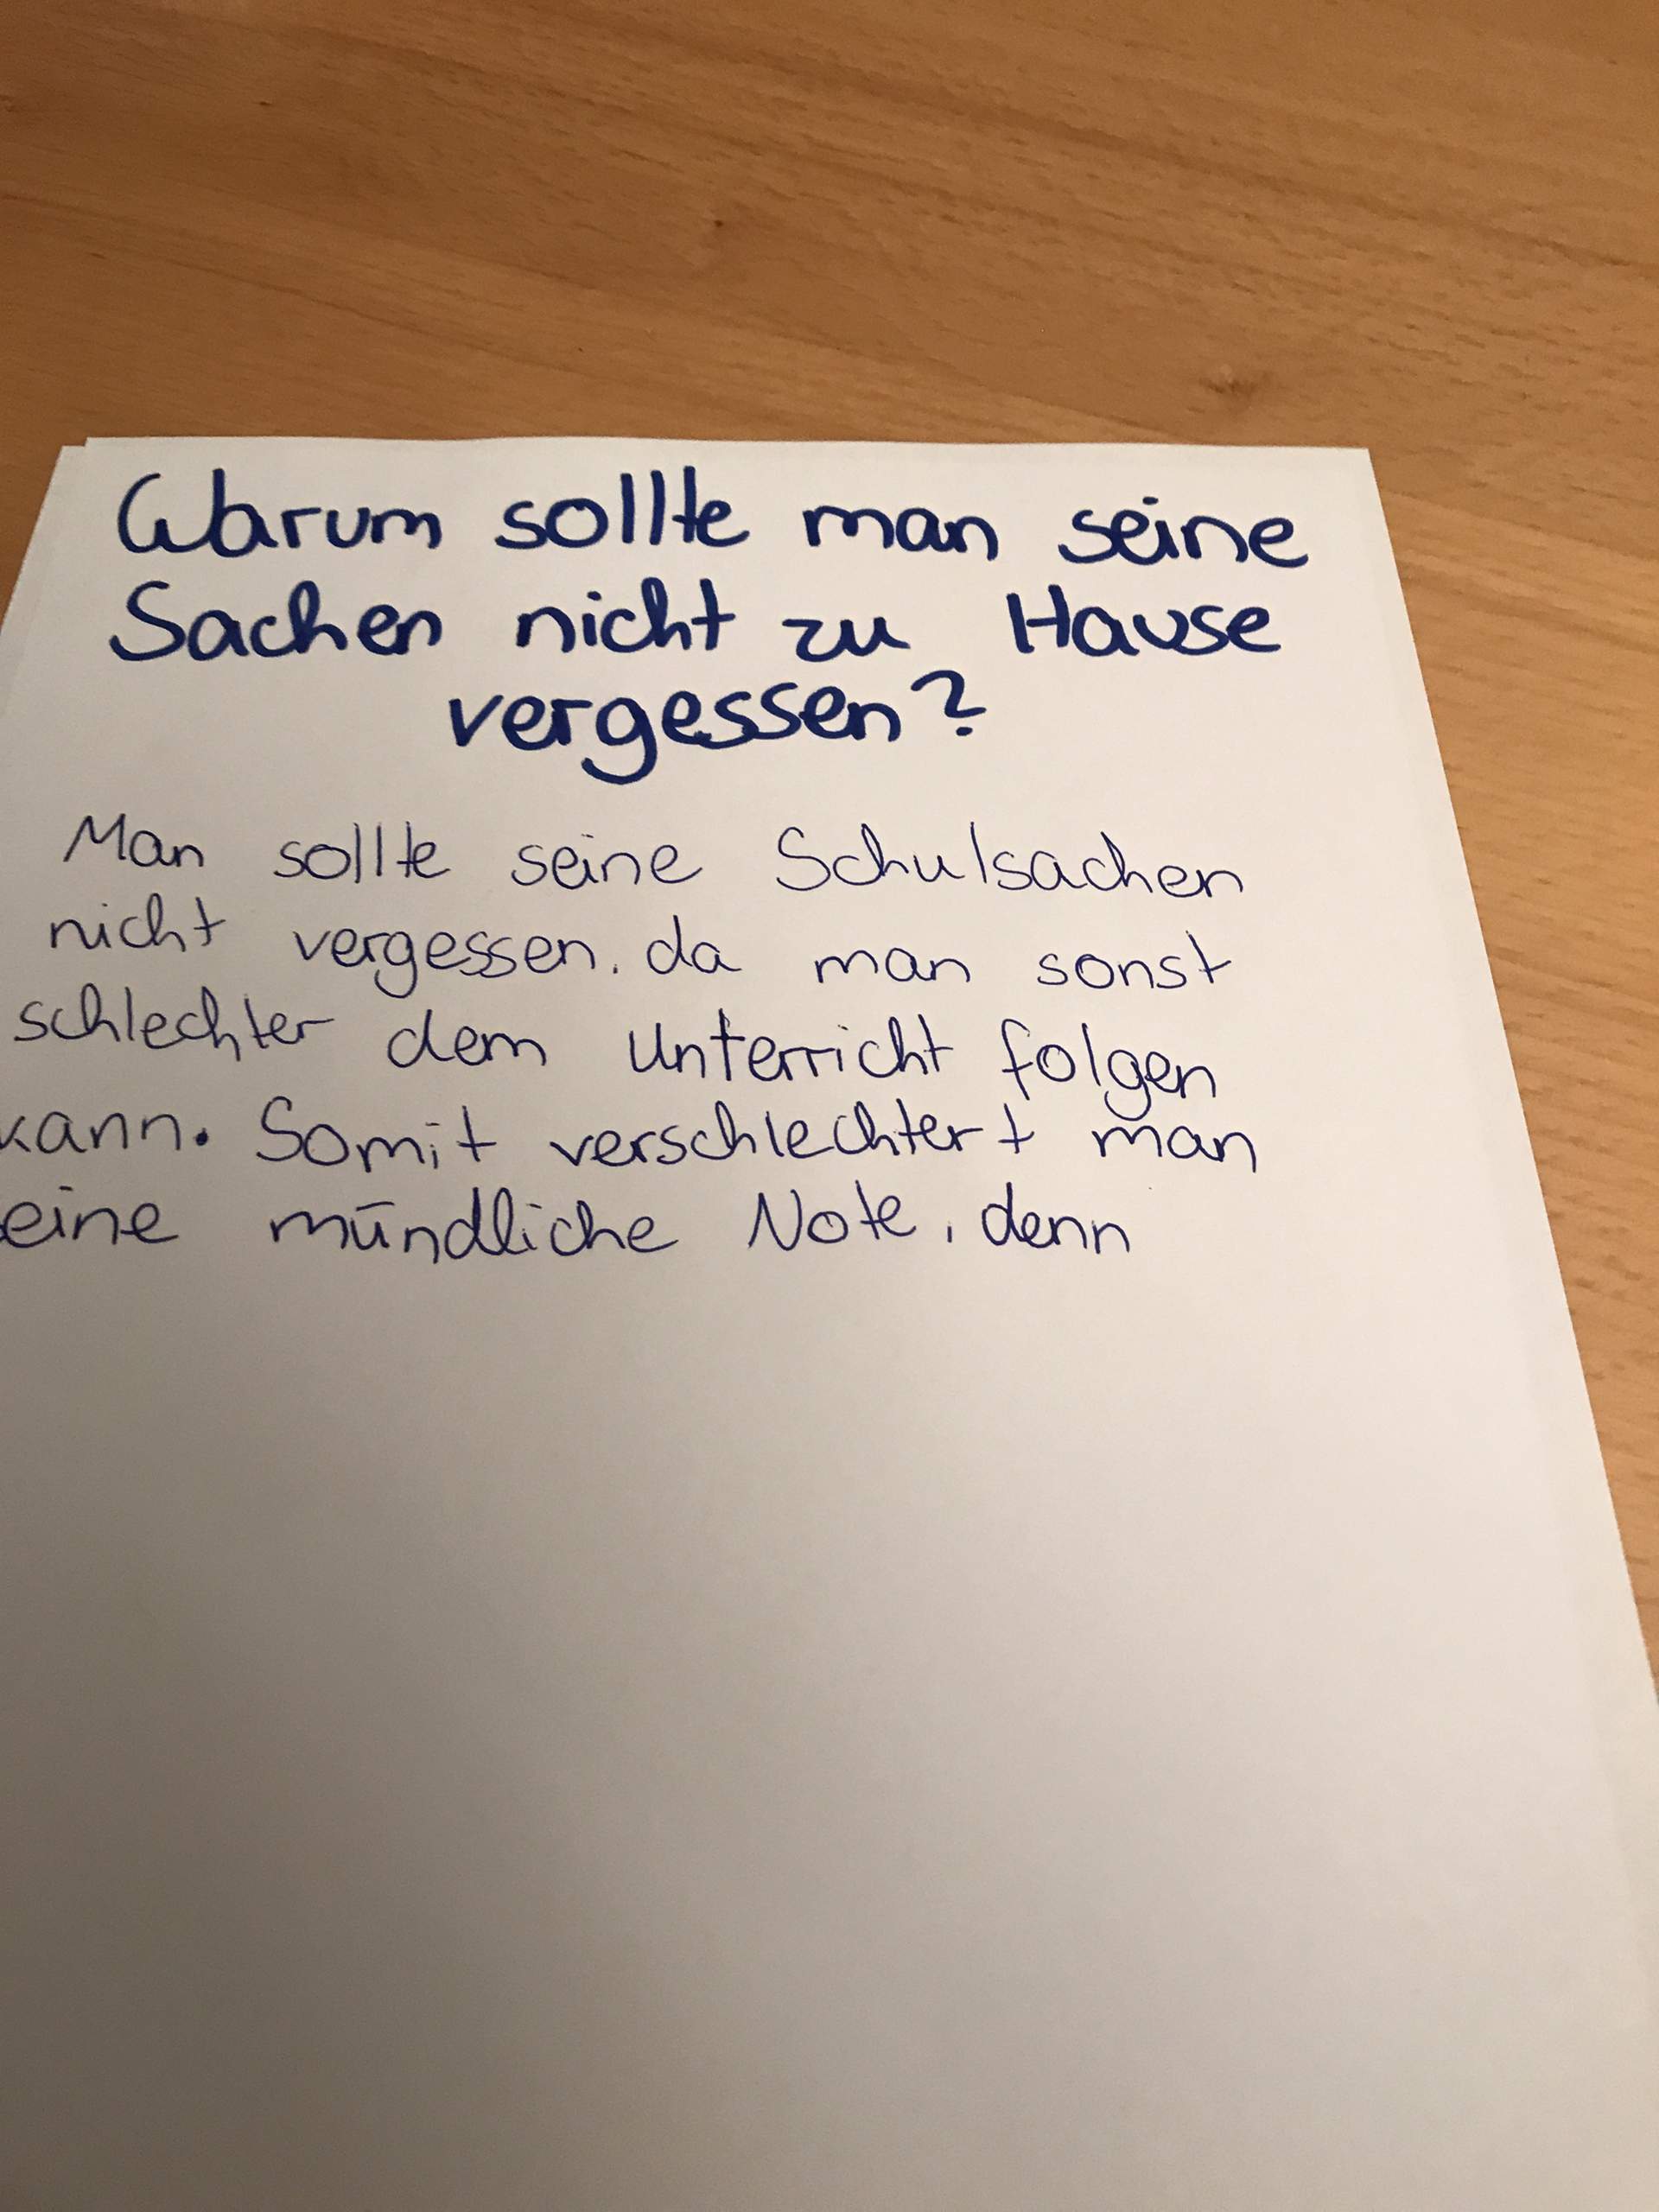 Warum sollte man seine
Sachen nicht zu Hause
vergessen?
Man sollte seine Schulsachen
nicht vergessen, da man sonst
schlechter dem Unterricht folgen
kann. Somit verschlechtert man
seine mündliche Note, denn